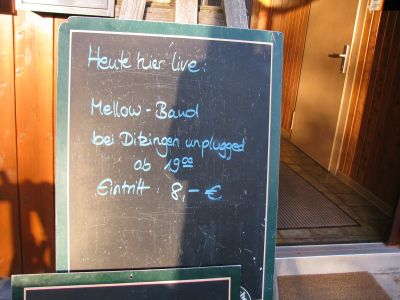 Heute hier live:
Mellow-Band
bei Ditzingen unplugged
ab 19⁰⁰
Eintritt: 8,- €